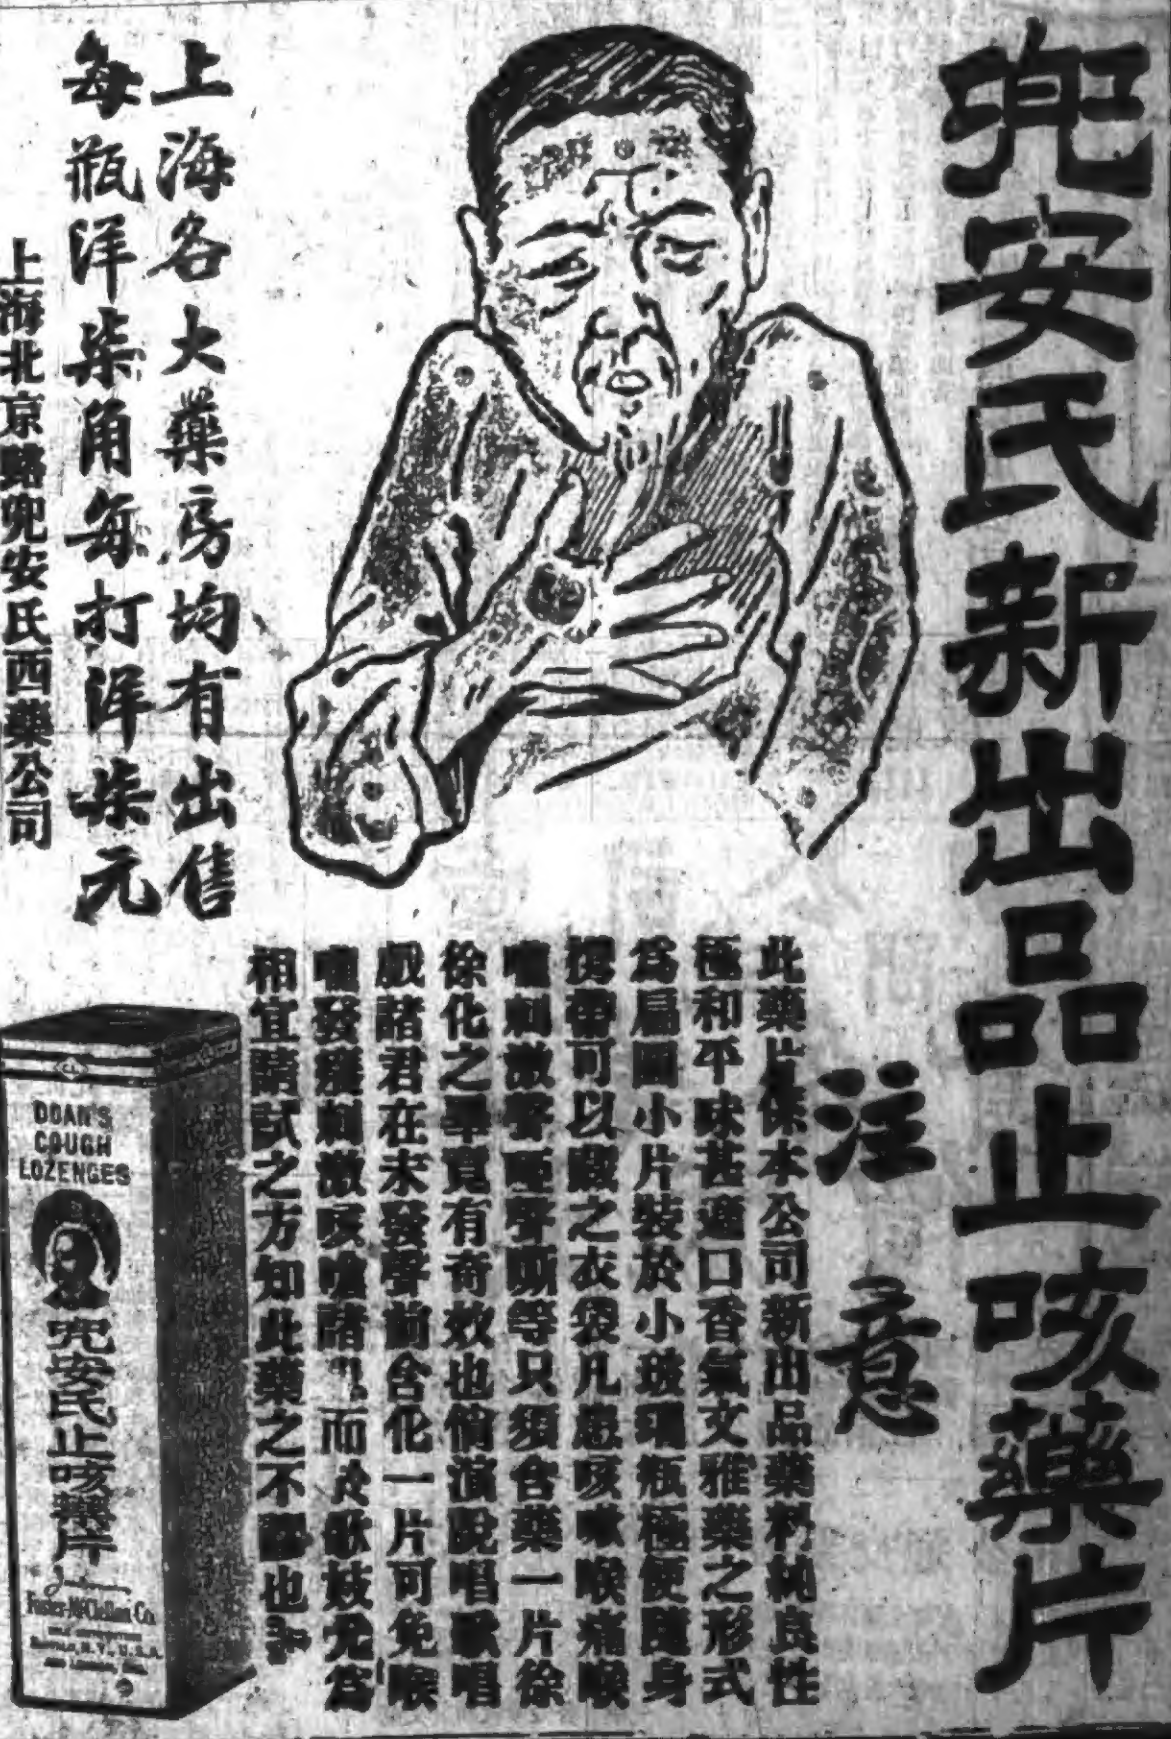 兜安氏新出品止咳藥片
注意
此藥片係本公司新出品藥料純良性
極和平味甚適口香氣文雅藥之形式
爲扁圓小片裝於小玻璃瓶極便隨身
携帶可以藏之衣袋凡患咳嗽喉痛喉
嚨刺激聲啞聲嘶等只須含藥一片徐
徐化之畢竟有奇效也倘演說唱歌唱
戲諸君在未發聲前含化一片可免喉
嚨發癢刺激咳嗆諸 而於歌妓尤爲
相宜請試之方知此藥之不謬也
上海各大藥房均有出售
每瓶洋柒角每打洋柒元
上海北京路兜安氏西藥公司
DOAN'S
COUGH
LOZENGES
兜安氏止咳藥片
Foster-McClellan Co.
BUFFALO, N.Y., U.S.A.